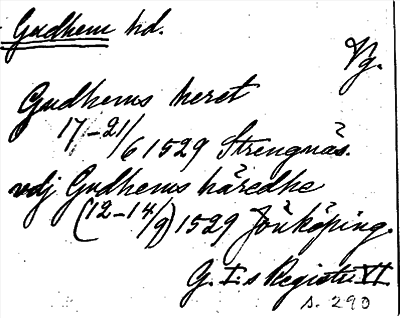 Gudhem hd.
Vg.
Gudhems heret
17-21/6 1529 Strengnäs.
vdj Gudhems häredhe
(12-14/9) 1529 Jönköping.
G. I:s Registr. VI
s. 290